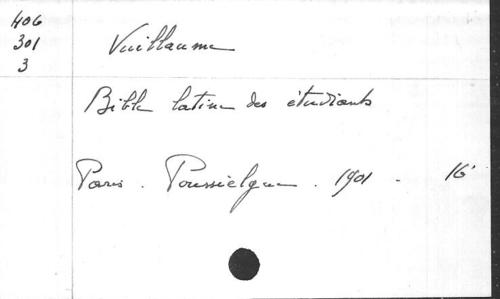 406
301
3
Vuillaume
Bible latine des étudiants
Paris. Poussielgue. 1901 - 16°